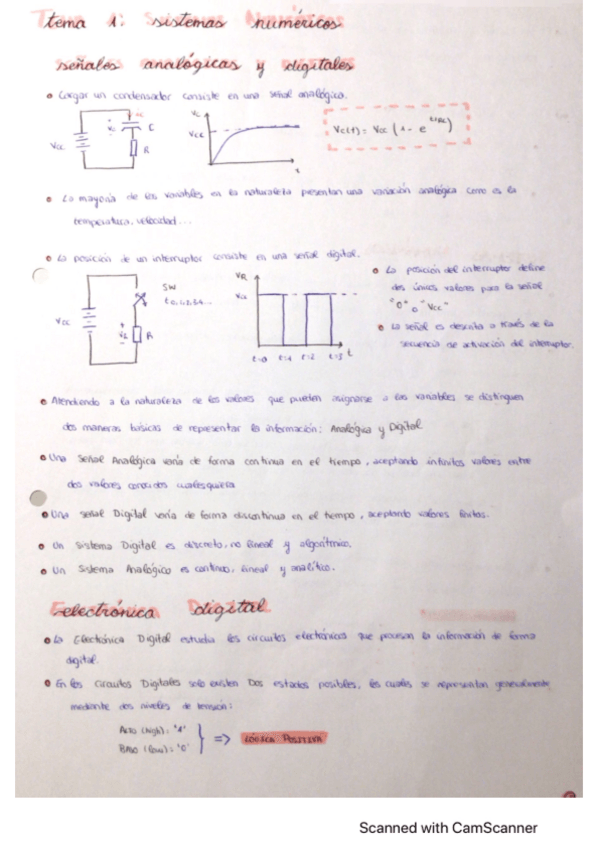 tema 1: sistemas numéricos
señales analógicas y digitales
Cargar un condensador consiste en una señal analógica.
Vcc
Vc
C
R
Vc
Vcc
Vc(t) = Vcc (1 - e
La mayoría de las variables en la naturaleza presentan una variación analógica como es la
temperatura, velocidad...
La posición de un interruptor consiste en una señal digital.
SW
Vcc
R
VR
Vcc
t=0 t=1 t=2 t=3 t
La posición del interruptor define
dos únicos valores para la señal
"0" o "Vcc"
La señal es descrita a través de la
secuencia de activación del interruptor.
Atendiendo a la naturaleza de los valores que pueden asignarse a las variables se distinguen
dos maneras básicas de representar la información: Analógica y Digital
Una Señal Analógica varía de forma continua en el tiempo, aceptando infinitos valores entre
dos valores conocidos cualesquiera
Una señal Digital varía de forma discontinua en el tiempo, aceptando valores finitos.
Un Sistema Digital es discreto, no lineal y algorítmico.
Un Sistema Analógico es continuo, lineal y analítico.
Electrónica digital
La Electrónica Digital estudia los circuitos electrónicos que procesan la información de forma
digital.
En los circuitos Digitales solo existen Dos estados posibles, los cuales se representan generalmente
mediante dos niveles de tensión:
ALTO (high): '1'
BAJO (low): '0'
=> LÓGICA POSITIVA
Scanned with CamScanner